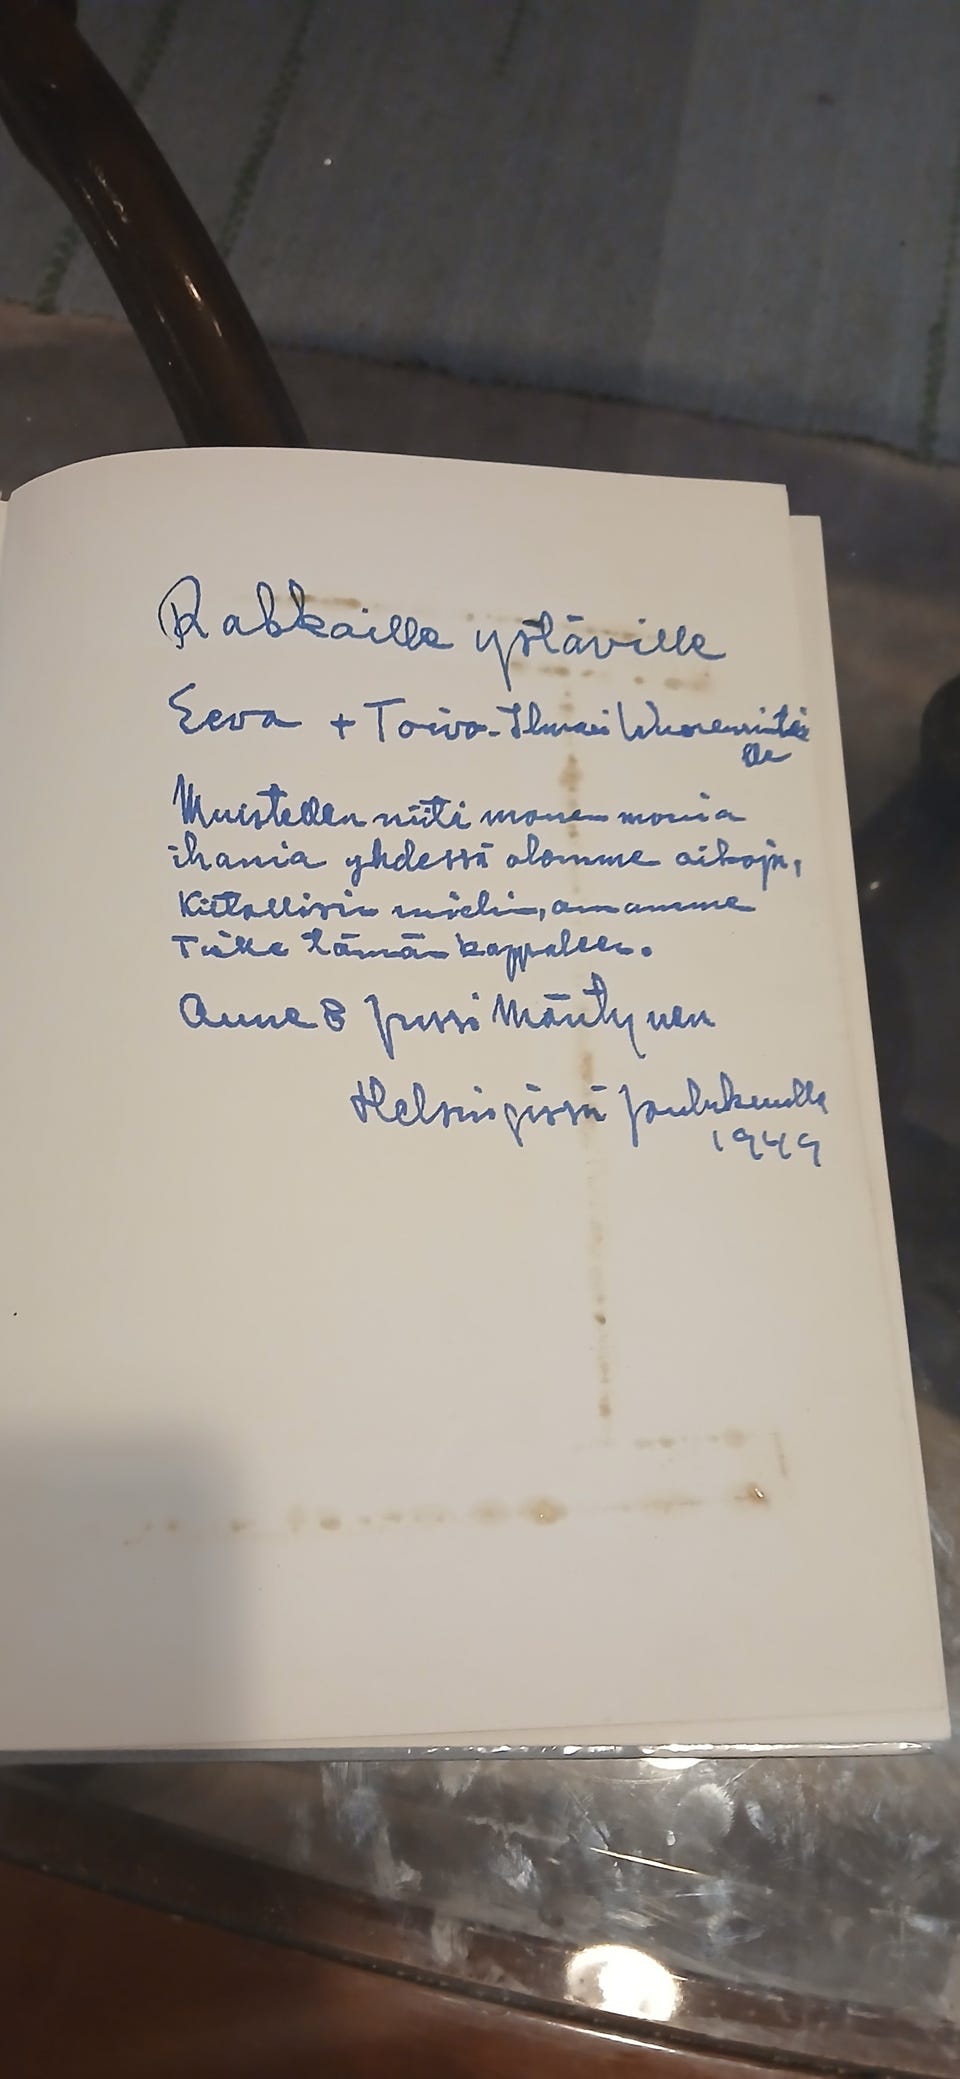 Rakkaille ystäville
Eeva + Toivo-Ilmari Wuorenrinteelle
Muistellen niitä monen monia
ihania yhdessä olomme aikoja,
Kiitollisin mielin, annamme
Teille tämän kappaleen.
Anne & Jussi Mäntynen
Helsingissä Joulukuulla
1949